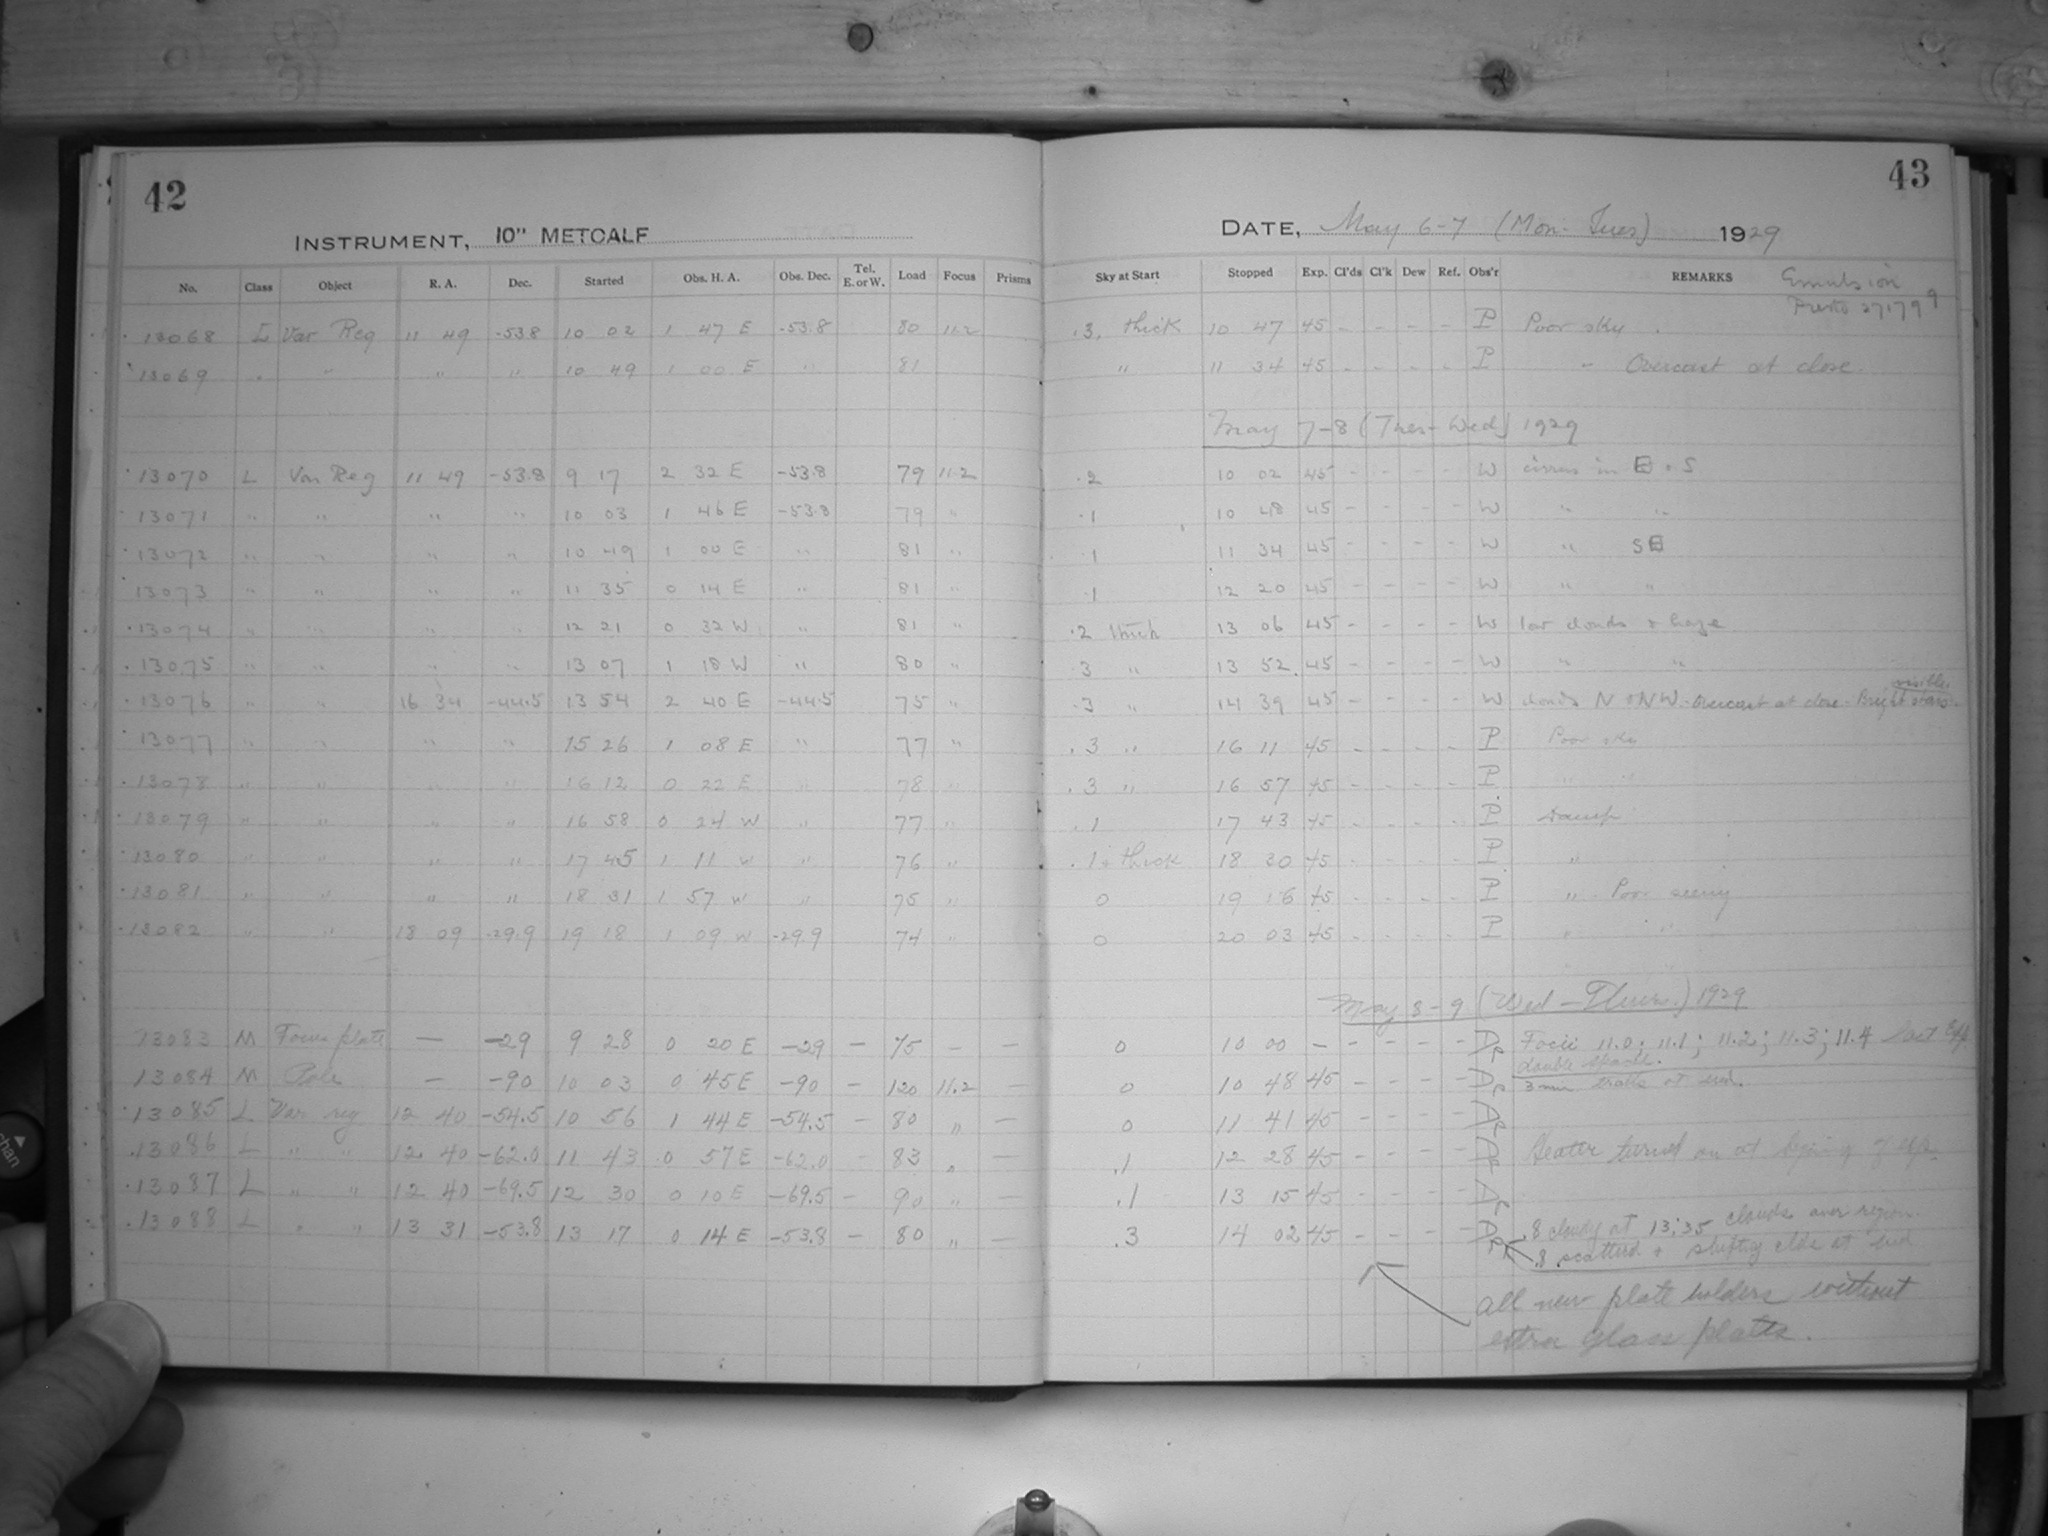 42
INSTRUMENT, 10" METCALF
No. Class Object R. A. Dec. Started Obs. H. A. Obs. Dec. Tel. E. or W. Load Focus Prisms
13068 L Var Reg 11 49 -53.8 10 02 1 47 E -53.8 80 11.2
13069 " " " " 10 49 1 00 E " 81
13070 L Var Reg 11 49 -53.8 9 17 2 32 E -53.8 79 11.2
13071 " " " " 10 03 1 46 E -53.8 79 "
13072 " " " " 10 49 1 00 E " 81 "
13073 " " " " 11 35 0 14 E " 81 "
13074 " " " " 12 21 0 32 W " 81 "
13075 " " " " 13 07 1 18 W " 80 "
13076 " " 16 34 -44.5 13 54 2 40 E -44.5 75 "
13077 " " " " 15 26 1 08 E " 77 "
13078 " " " " 16 12 0 22 E " 78 "
13079 " " " " 16 58 0 24 W " 77 "
13080 " " " " 17 45 1 11 W " 76 "
13081 " " " " 18 31 1 57 W " 75 "
13082 " " 18 09 -29.9 19 18 1 09 W -29.9 74 "
13083 M Focus plate — -29 9 28 0 20 E -29 - 75 - -
13084 M Pole — -90 10 03 0 45 E -90 - 120 11.2 -
13085 L Var reg 12 40 -54.5 10 56 1 44 E -54.5 - 80 " -
13086 L " " 12 40 -62.0 11 43 0 57 E -62.0 - 83 " -
13087 L " " 12 40 -69.5 12 30 0 10 E -69.5 - 90 " -
13088 L " " 13 31 -53.8 13 17 0 14 E -53.8 - 80 " -
43
DATE, May 6-7 (Mon-Tues) 1929
Sky at Start Stopped Exp. Cl'ds Cl'k Dew Ref. Obs'r REMARKS Emulsion
Presto 27179
.3, thick 10 47 45 - - - - P Poor sky.
" 11 34 45 - - - - P " Overcast at close.
May 7-8 (Tues-Wed) 1929
.2 10 02 45 - - - - W cirrus in E + S
.1 10 48 45 - - - - W " "
.1 11 34 45 - - - - W " SE
.1 12 20 45 - - - - W " "
.2 thick 13 06 45 - - - - W low clouds + haze
.3 " 13 52 45 - - - - W " "
.3 " 14 39 45 - - - - W clouds N + NW - Overcast at close - Bright stars visible
.3 " 16 11 45 - - - - P Poor sky
.3 " 16 57 45 - - - - P " "
.1 17 43 45 - - - - P Damp
.1 + thick 18 30 45 - - - - P "
0 19 16 45 - - - - P " Poor seeing
0 20 03 45 - - - - P " "
May 8-9 (Wed-Thurs.) 1929
0 10 00 - - - - - DR Focii 11.0; 11.1; 11.2; 11.3; 11.4 last exp
double space.
0 10 48 45 - - - - DR 3 min trails at end.
0 11 41 45 - - - - DR
.1 12 28 45 - - - - DR Heater turned on at of exp.
.1 13 15 45 - - - - DR
.3 14 02 45 - - - - DR .8 cloudy at 13:35 clouds over region.
.8 scattered + shifting clds at end
all new plate holders without
extra glass plates.